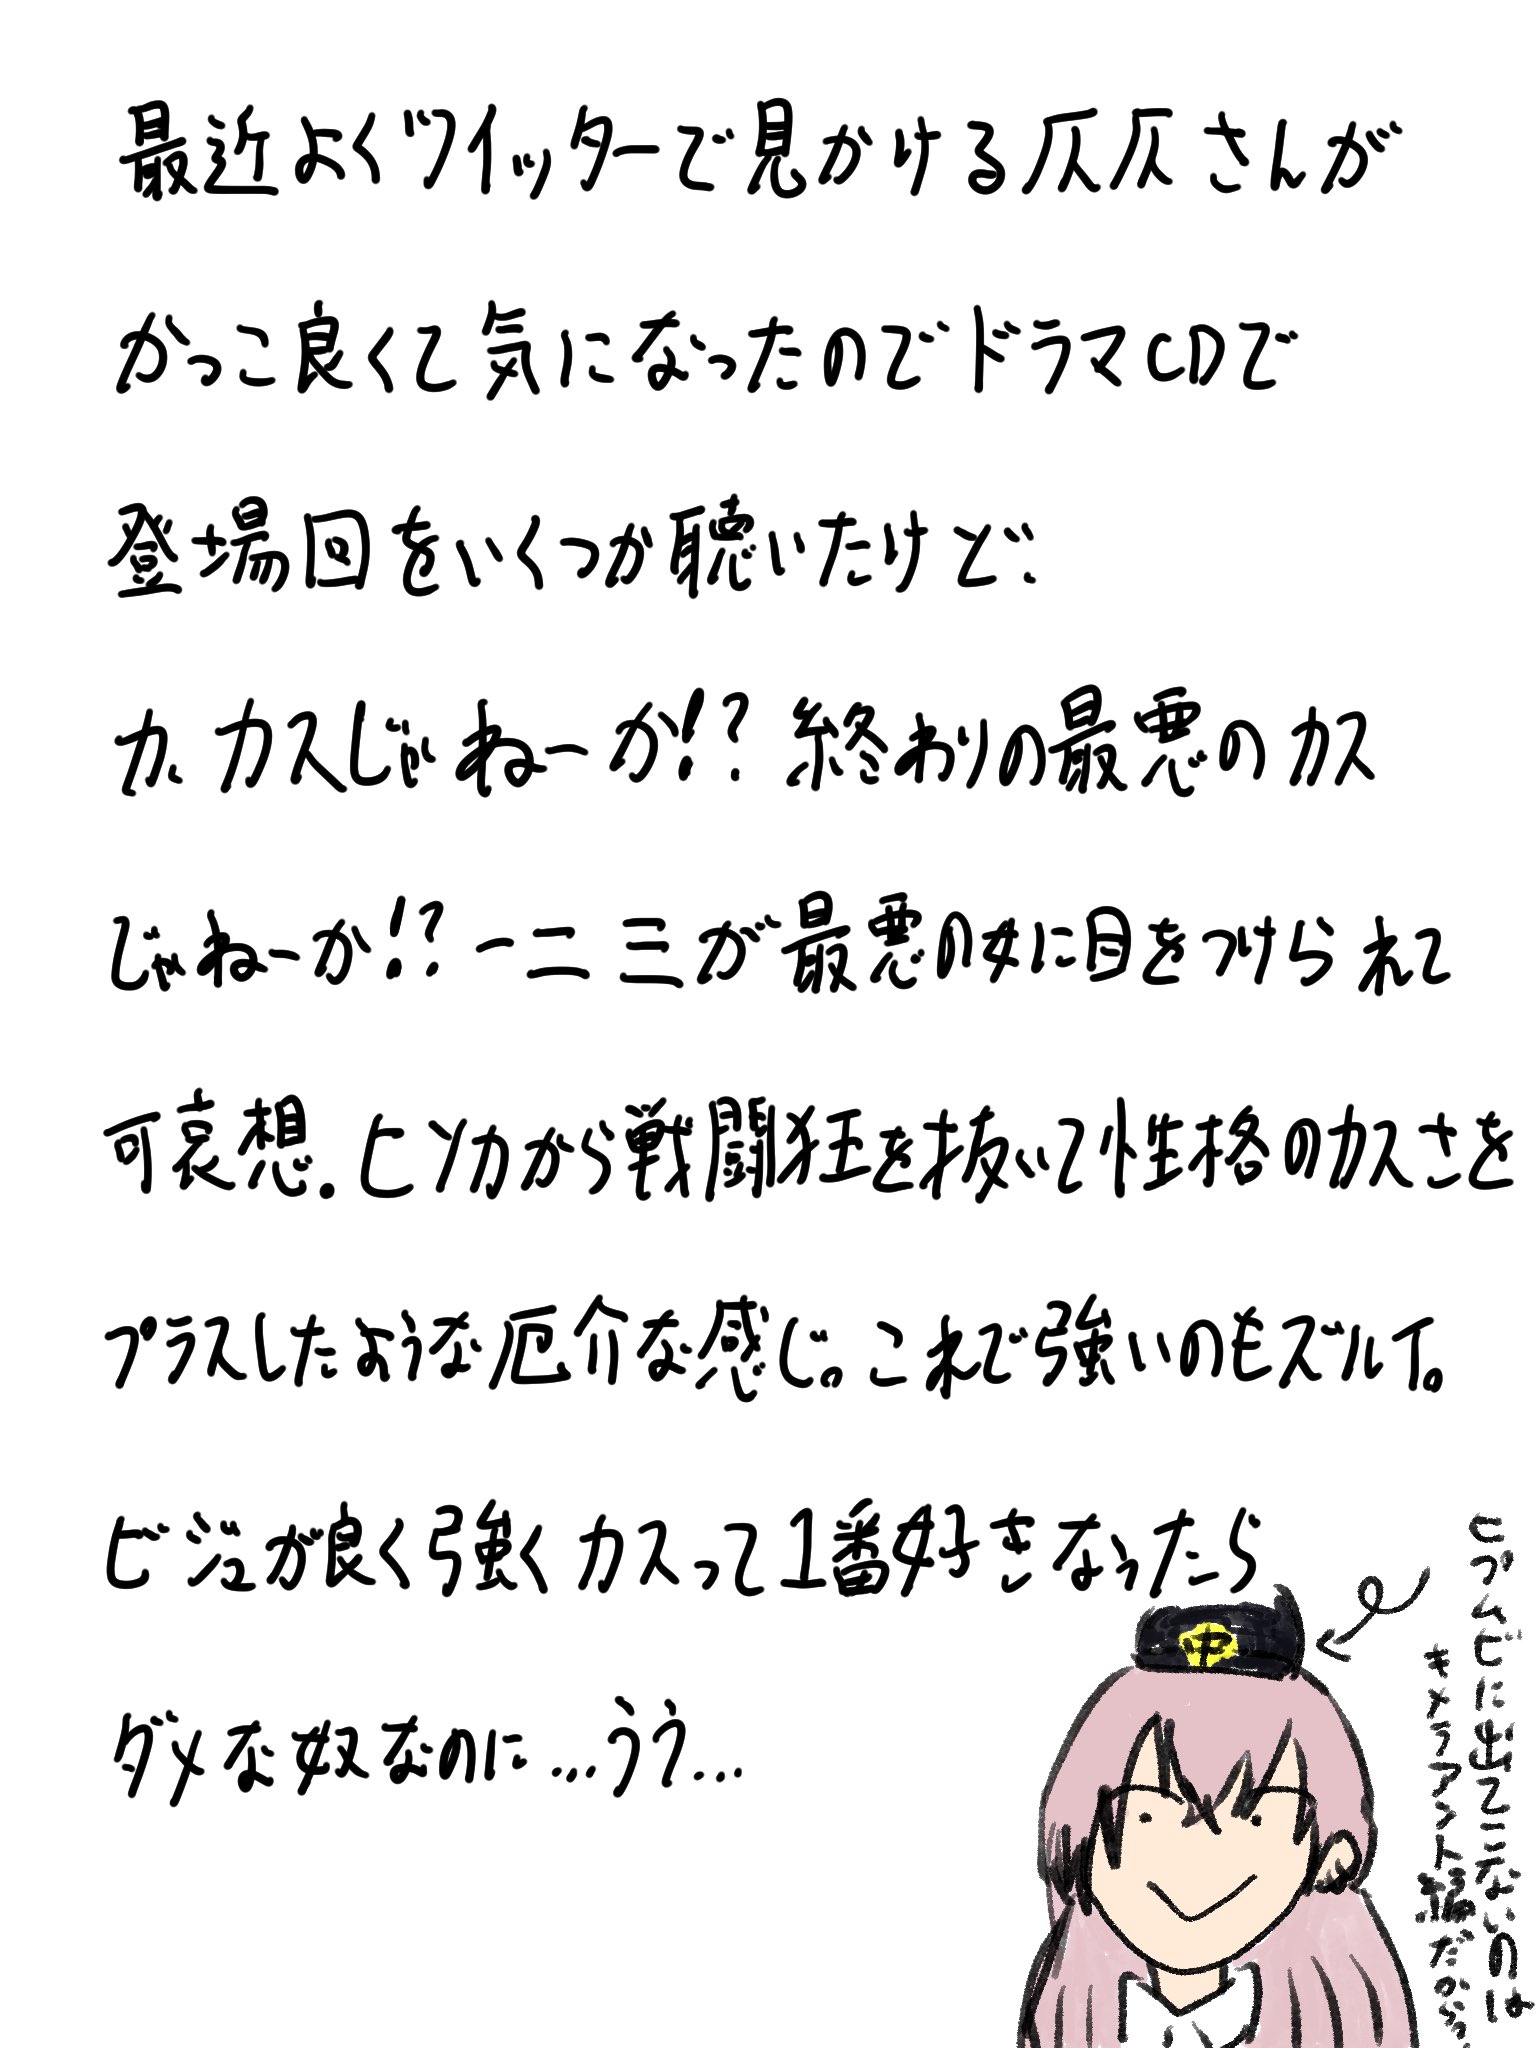 最近よくツイッターで見かける仄仄さんが
かっこ良くて気になったのでドラマCDで
登場回をいくつか聴いたけど、
カ、カスじゃねーか!?終わりの最悪のカス
じゃねーか!?一二三が最悪の女に目をつけられて
可哀想。ヒソカから戦闘狂を抜いて性格のカスさを
プラスしたような厄介な感じ。これで強いのもズルイ。
ビジュが良く強くカスって1番好きなったら
ダメな奴なのに…うう…
ヒプムビに出てこないのは
キメラアント編だからっ
中